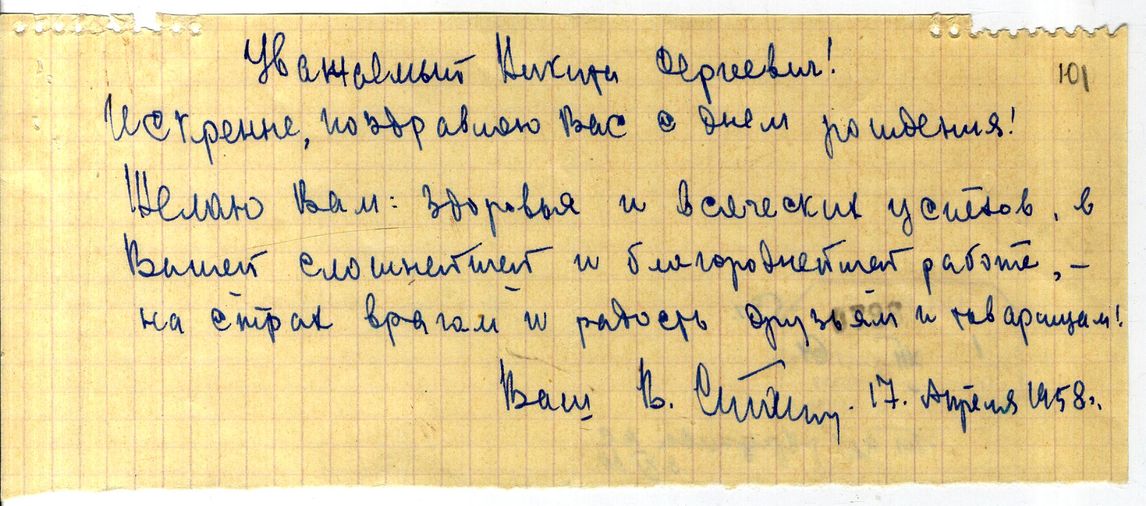 Уважаемый Никита Сергеевич!
101
Искренне, поздравляю Вас с днем рождения!
Желаю Вам: здоровья и всяческих успехов, в
Вашей сложнейшей и благороднейшей работе, –
на страх врагам и радость друзьям и товарищам!
Ваш В. Сталин. 17. Апреля 1958 г.